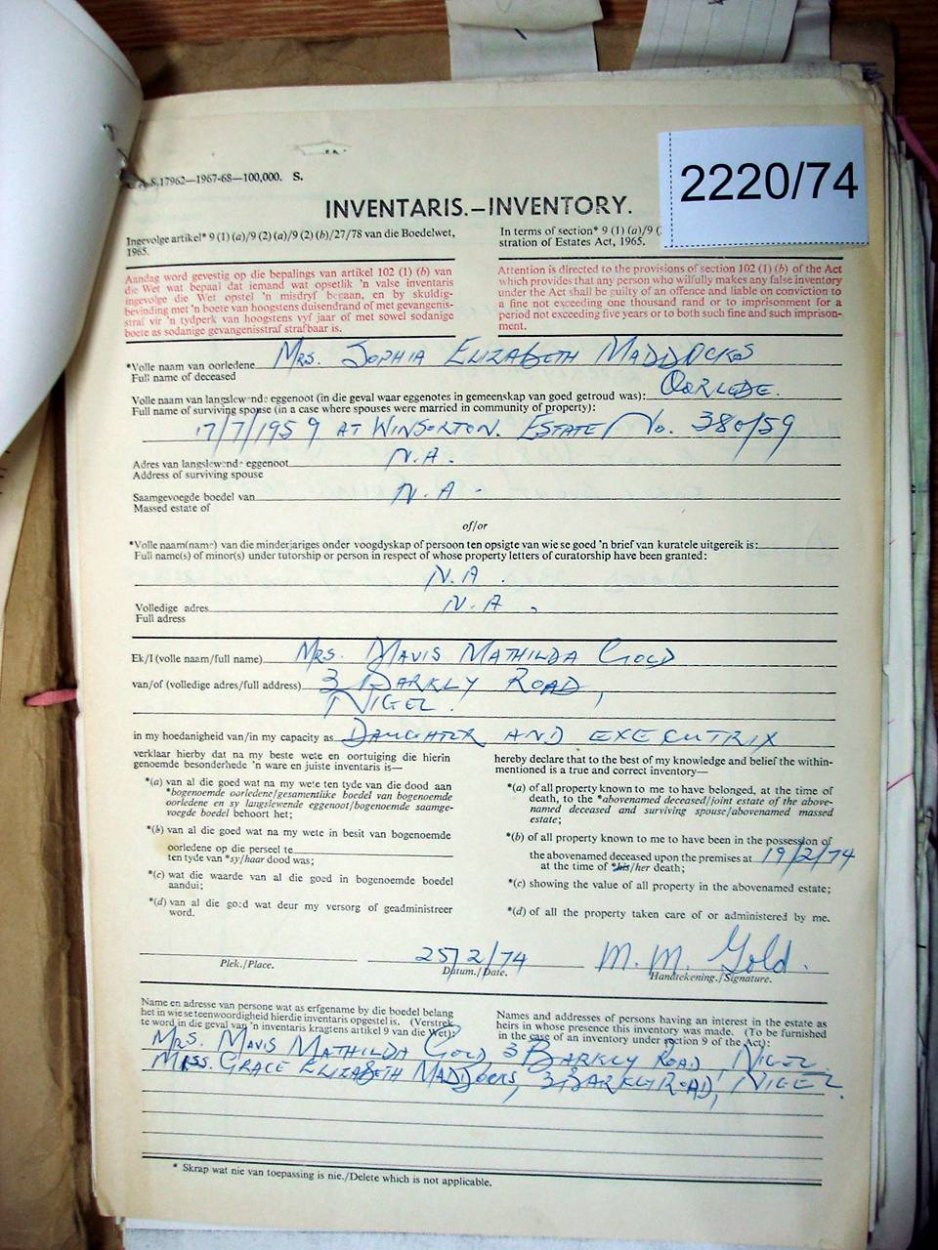 2220/74
A.S.17962—1967-68—100,000. S.
INVENTARIS.—INVENTORY.
Ingevolge artikel* 9 (1) (a)/9 (2) (a)/9 (2) (b)/27/78 van die Boedelwet,
1965.
In terms of section* 9 (1) (a)/9 (
stration of Estates Act, 1965.
Aandag word gevestig op die bepalings van artikel 102 (1) (b) van
die Wet wat bepaal dat iemand wat opsetlik 'n valse inventaris
ingevolge die Wet opstel 'n misdryf begaan, en by skuldig-
bevinding met 'n boete van hoogstens duisendrand of met gevangenis-
straf vir 'n tydperk van hoogstens vyf jaar of met sowel sodanige
boete as sodanige gevangenisstraf strafbaar is.
Attention is directed to the provisions of section 102 (1) (b) of the Act
which provides that any person who wilfully makes any false inventory
under the Act shall be guilty of an offence and liable on conviction to
a fine not exceeding one thousand rand or to imprisonment for a
period not exceeding five years or to both such fine and such imprison-
ment.
*Volle naam van oorledene MRS. SOPHIA ELIZABETH MADDOCKS
Full name of deceased
Volle naam van langslewende eggenoot (in die geval waar eggenotes in gemeenskap van goed getroud was): OORLEDE.
Full name of surviving spouse (in a case where spouses were married in community of property):
17/7/1959 AT WINSORTON. ESTATE No. 380/59
Adres van langslewende eggenoot N.A.
Address of surviving spouse
Saamgevoegde boedel van N.A.
Massed estate of
of/or
*Volle naam(name) van die minderjariges onder voogdyskap of persoon ten opsigte van wie se goed 'n brief van kuratele uitgereik is:
Full name(s) of minor(s) under tutorship or person in respect of whose property letters of curatorship have been granted:
N.A.
Volledige adres N.A.
Full adress
Ek/I (volle naam/full name) MRS. MAVIS MATHILDA GOLD
van/of (volledige adres/full address) 3 BARKLY ROAD,
NIGEL.
in my hoedanigheid van/in my capacity as DAUGHTER AND EXECUTRIX
verklaar hierby dat na my beste wete en oortuiging die hierin
genoemde besonderhede 'n ware en juiste inventaris is—
*(a) van al die goed wat na my wete ten tyde van die dood aan
*bogenoemde oorledene/gesamentlike boedel van bogenoemde
oorledene en sy langslewende eggenoot/bogenoemde saamge-
voegde boedel behoort het;
*(b) van al die goed wat na my wete in besit van bogenoemde
oorledene op die perseel te
ten tyde van *sy/haar dood was;
*(c) wat die waarde van al die goed in bogenoemde boedel
aandui;
*(d) van al die goed wat deur my versorg of geadministreer
word.
hereby declare that to the best of my knowledge and belief the within-
mentioned is a true and correct inventory—
*(a) of all property known to me to have belonged, at the time of
death, to the *abovenamed deceased/joint estate of the above-
named deceased and surviving spouse/abovenamed massed
estate;
*(b) of all property known to me to have been in the possession of
the abovenamed deceased upon the premises at 19/2/74
at the time of *his/her death;
*(c) showing the value of all property in the abovenamed estate;
*(d) of all the property taken care of or administered by me.
25/2/74 M. M. Gold.
Plek./Place. Datum./Date. Handtekening./Signature.
Name en adresse van persone wat as erfgename by die boedel belang
het in wie se teenwoordigheid hierdie inventaris opgestel is. (Verstrek
te word in die geval van 'n inventaris kragtens artikel 9 van die Wet):
Names and addresses of persons having an interest in the estate as
heirs in whose presence this inventory was made. (To be furnished
in the case of an inventory under section 9 of the Act):
MRS. MAVIS MATHILDA GOLD, 3 BARKLY ROAD, NIGEL.
MISS. GRACE ELIZABETH MADDOCKS, 3 BARKLY ROAD, NIGEL.
* Skrap wat nie van toepassing is nie./Delete which is not applicable.